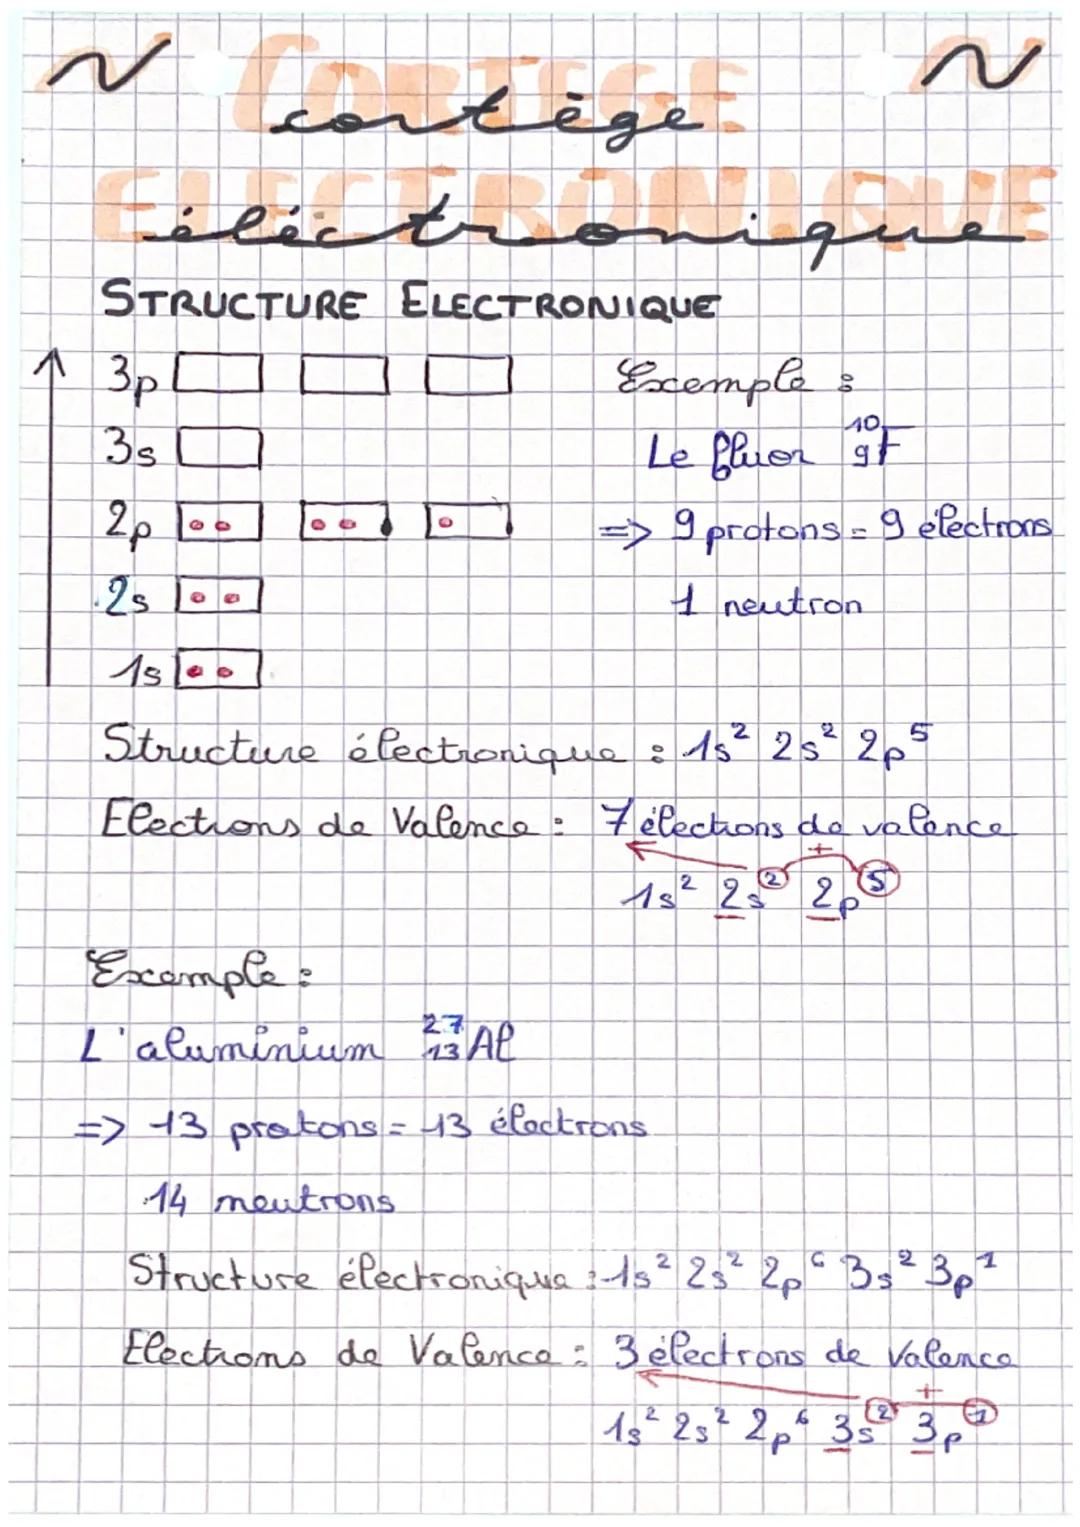 ~ CORTEGE ~
cortège
ELECTRONIQUE
éléctronique
STRUCTURE ELECTRONIQUE
3p
Exemple :
3s
Le fluor ¹⁰₉F
2p
=> 9 protons = 9 électrons
2s
1 neutron
1s
Structure électronique : 1s² 2s² 2p⁵
Electrons de Valence : 7 électrons de valence
+
1s² 2s² 2p⁵
Exemple :
L'aluminium ²⁷₁₃Al
=> 13 protons = 13 électrons
14 neutrons
Structure électronique : 1s² 2s² 2p⁶ 3s² 3p¹
Electrons de Valence : 3 électrons de valence
+
1s² 2s² 2p⁶ 3s² 3p¹